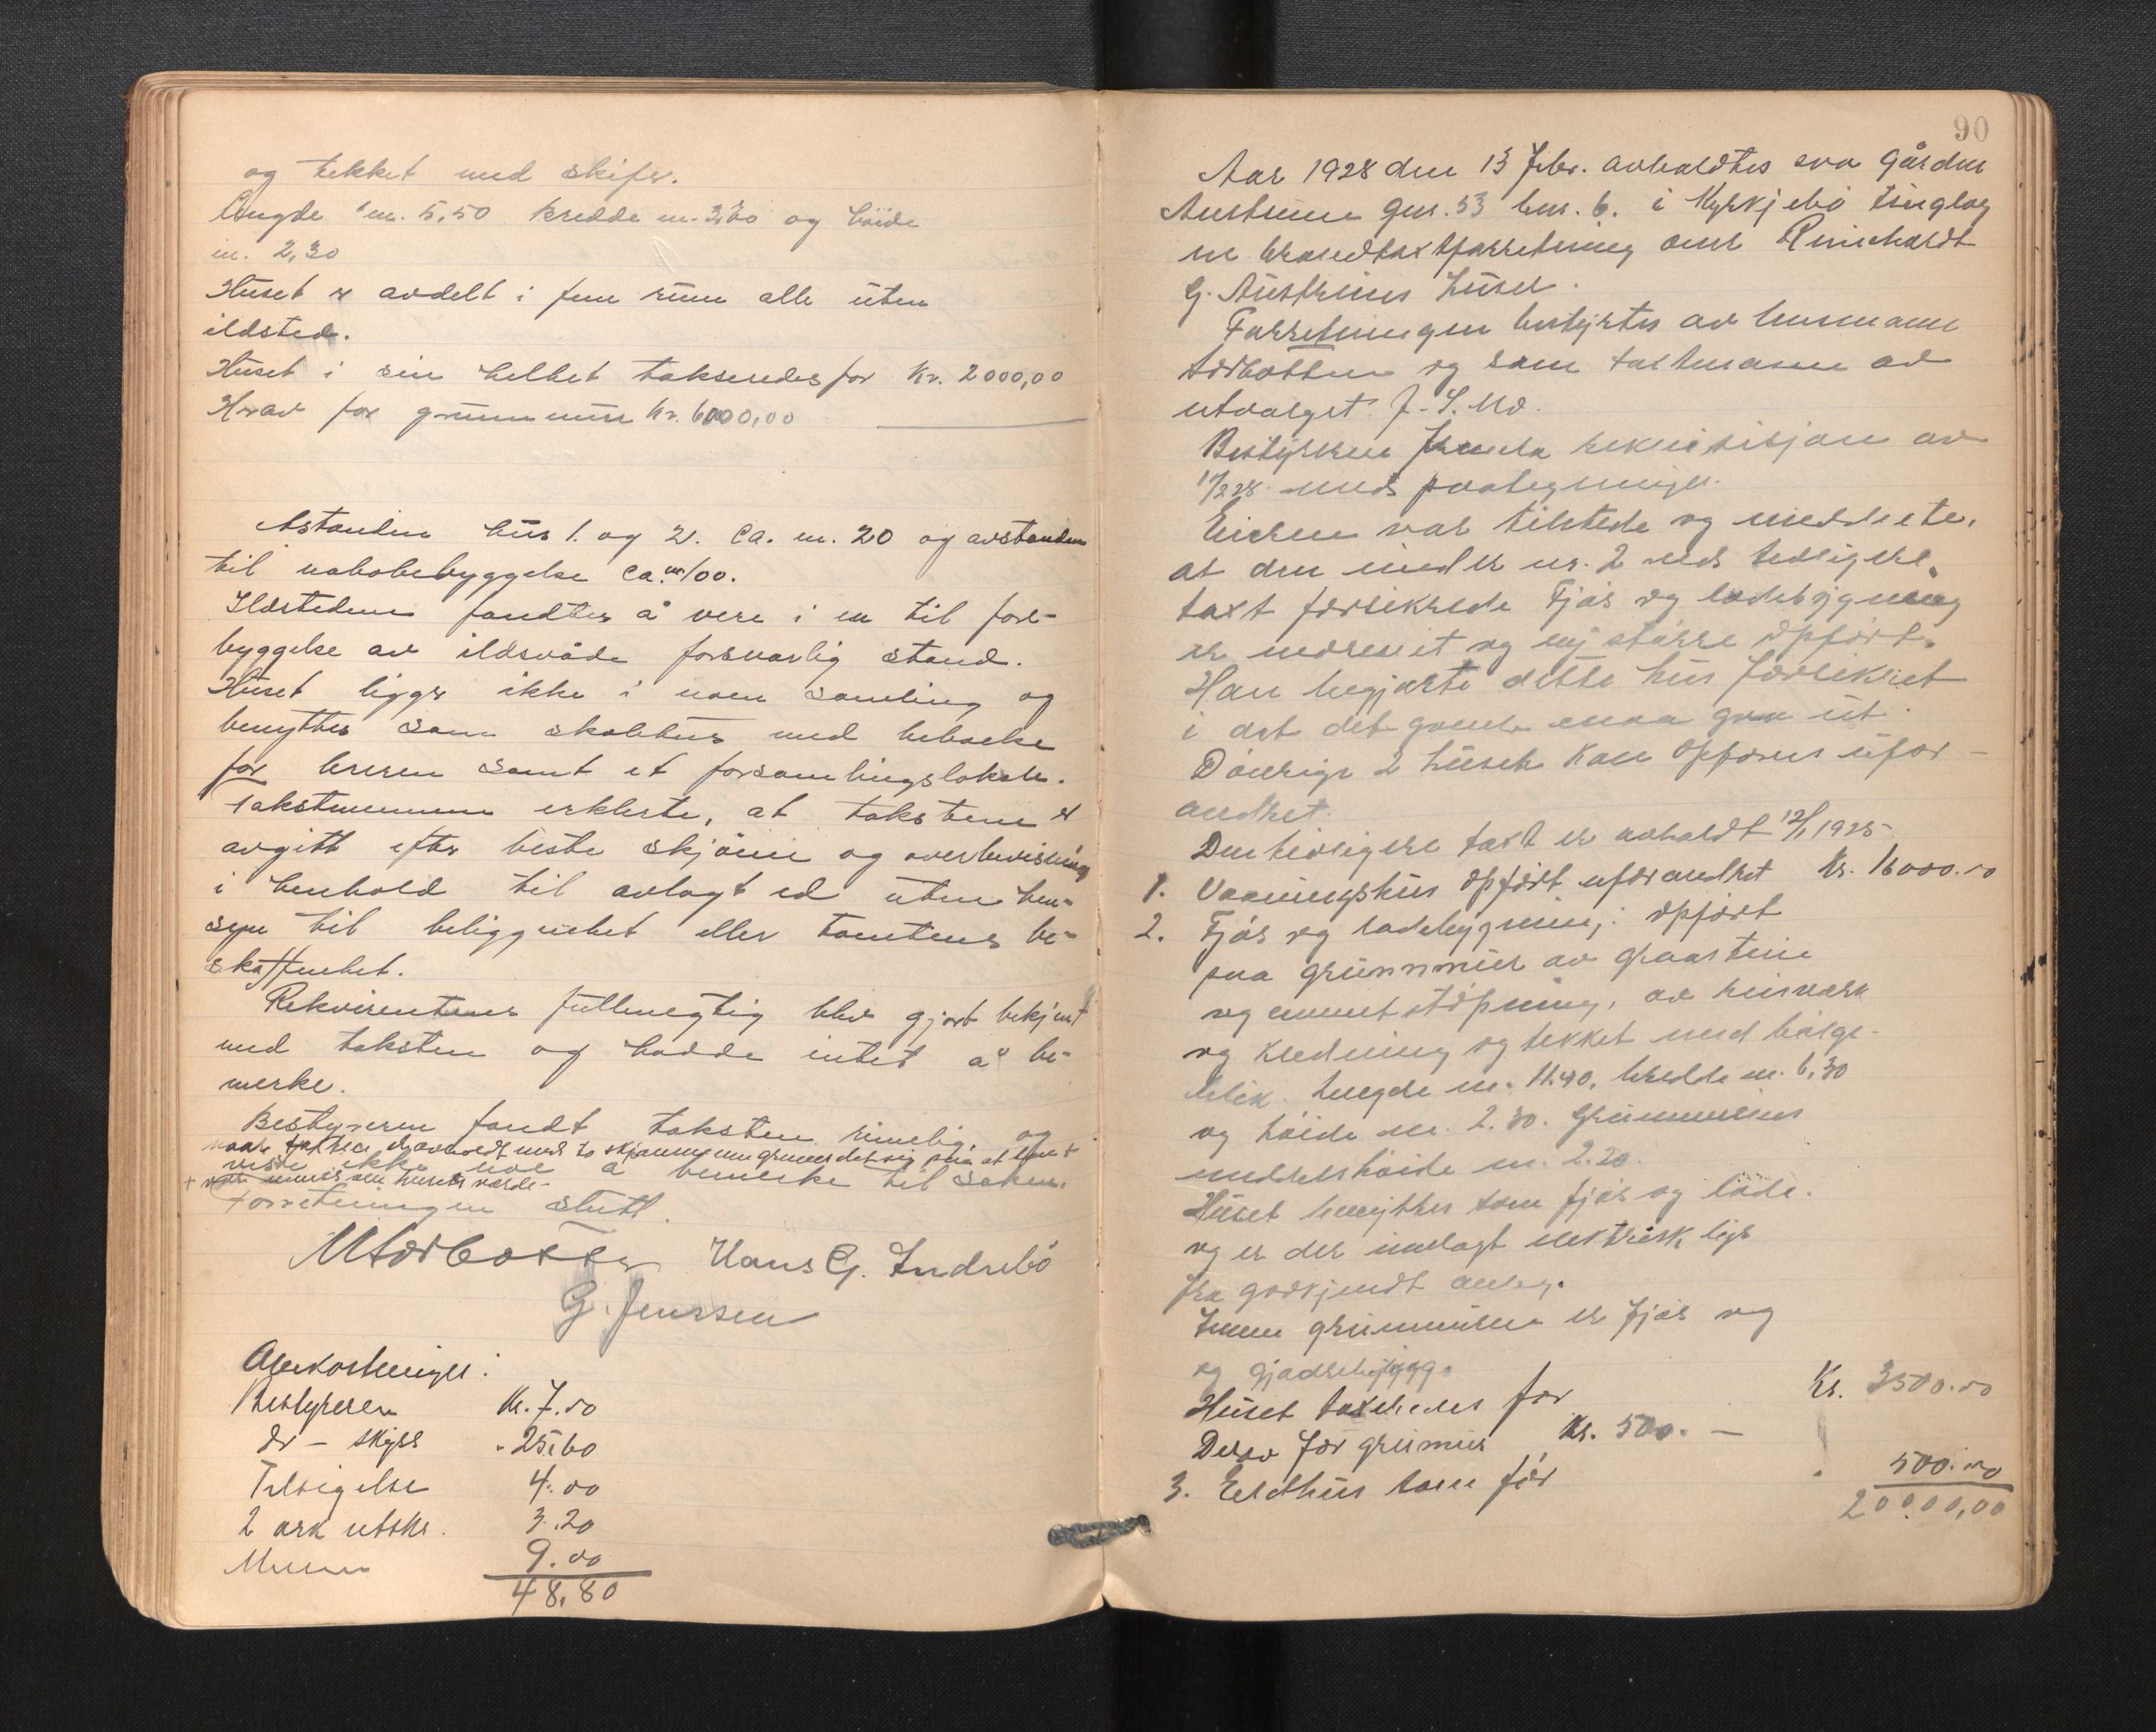 og tekket med skifer.
Lengde m. 5,50 bredde m. 3,60 og höide
m. 2,30
Huset er avdelt i fem rum alle uten
ildsted.
Huset i sin helhet takseredes for Kr. 2000,00
Hvav for grunnmur Kr. 6000,00
Astanden hus 1. og 2. ca. m. 20 og avstanden
til nabobebyggelse ca. m. 100.
Ildstedene fandtes å vere i en til fore-
byggelse av ildsvåde forsvarlig stand.
Huset ligger ikke i noen samling og
benyttes som skolehus med beboelse
for lereren samt et forsamlingslokale.
Takstmennene erklerte, at takstene er
avgitt efter beste skjönn og overbevisning
i henhold til avlagt ed uten hen-
syn til beliggenhet eller tomtens be-
skaffenhet.
Rekvirentens fullmegtig blev gjort bekjent
med taksten og hadde intet å be-
merke.
Bestyreren fandt taksten rimelig, og
naar taksten er avholdt med to skjönnsmenn grunner det sig paa at
visste ikke noe å bemerke til saken.
+ husets værde
Forretningen slutt.
M Størbotten Hans G. Indrebö
G. Jenssen
Omkostninger:
Bestyreren Kr. 7.00
do – skyss - 25.60
Tilsigelse 4.00
2 ark utskr. 3.20
9.00
48,80
90
Aar 1928 den 13 Febr. avholdtes paa gården
Austreim gnr. 53 bnr. 6. i Kyrkjebö tinglag
en brandtaxtforretning over Reinhardt
G. Austreims huser.
Forretningen bestyrtes av lensmann
Størbotten og som taxtmann av
utvalget J. S. Mo.
Bestyreren fremla rekvisisjon av
/2 28 med paategninger.
Eieren var tilstede og meddelte,
at den under nr. 2 ved tidligere
taxt forsikrede Fjös og ladebygning
er nedrevet og ny större opfört.
Han begjærte dette hus forsikret
i det det gamle maa gaa ut.
De övrige 2 huser kan opföres ufor-
andret.
Den tidligere taxt er avholdt 12/1 1925
1. Vaaningshus opfört uforandret Kr. 16000.00
2. Fjös og ladebygning: opfört
paa grunnmur av graastein
og cementstöpning, av binsverk
og kledning og tekket med bölge-
blikk. Lengde m. 11.40, bredde m. 6,30
og höide m. 2.30. Grunnmurens
middelshöide m. 2.20.
Huset benyttes som fjös og löde.
og er der innlagt elektrisk lys
fra godkjendt anleg.
Innen grunnmuren er fjös og
og gjödselbygg.
Huset taxeredes for Kr. 3500.00
Derav for grunmur Kr. 500. —
3. Eldhus som för 500.00
20000,00